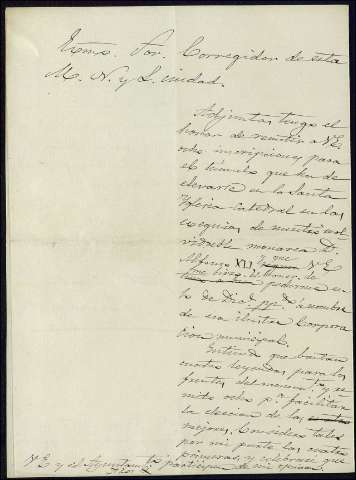 Exmo. Sor. Corregidor de esta
M. N. y L. ciudad.
Adjuntas tengo el
honor de remitir a V.E.
ocho inscripciones para
el túmulo que ha de
elevarse en la Santa
Iglesia Catedral en las
exequias de nuestro inol-
vidable monarca D.
Alfonso XII, que V.E
se sirvió
de Dic. ppdo. a nombre
de esa ilustre Corpora-
cion municipal.
Entiendo que bastan
cuatro leyendas para los
frentes del monumto. y re-
mito ocho pa. facilitar
la eleccion de las cuatro
mejores. Considero tales
por mi parte las cuatro
primeras, y celebraré que
V.E y el Ayuntamto. participen de mi opinion.